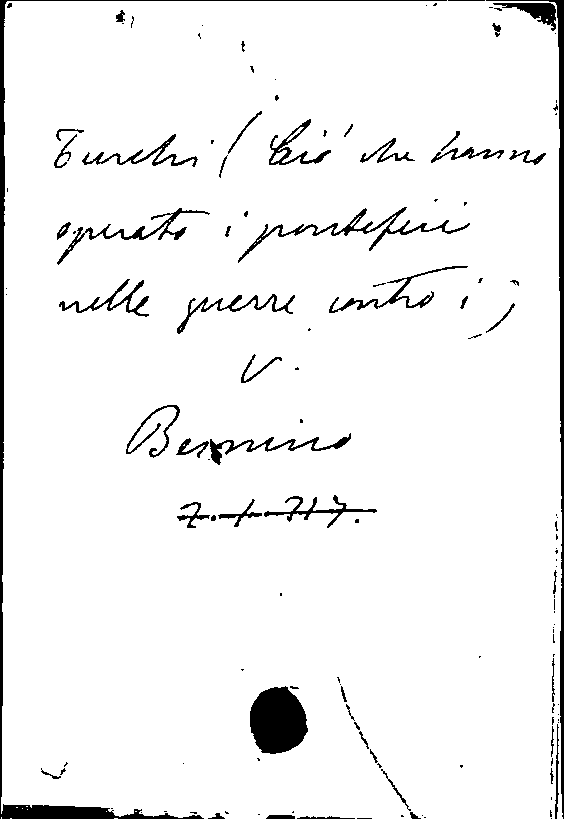 Turchi (Ciò che hanno
operato i pontefici
nelle guerre contro i)
V.
Bernino
7.1.317.